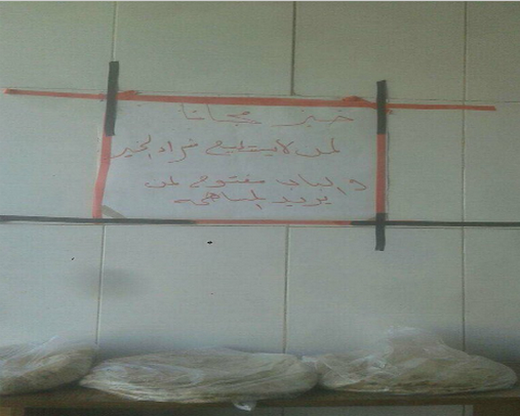 خبز مجانا
لمن لايستطيع شراء الخبز
والباب مفتوح لمن
يريد المساهمه